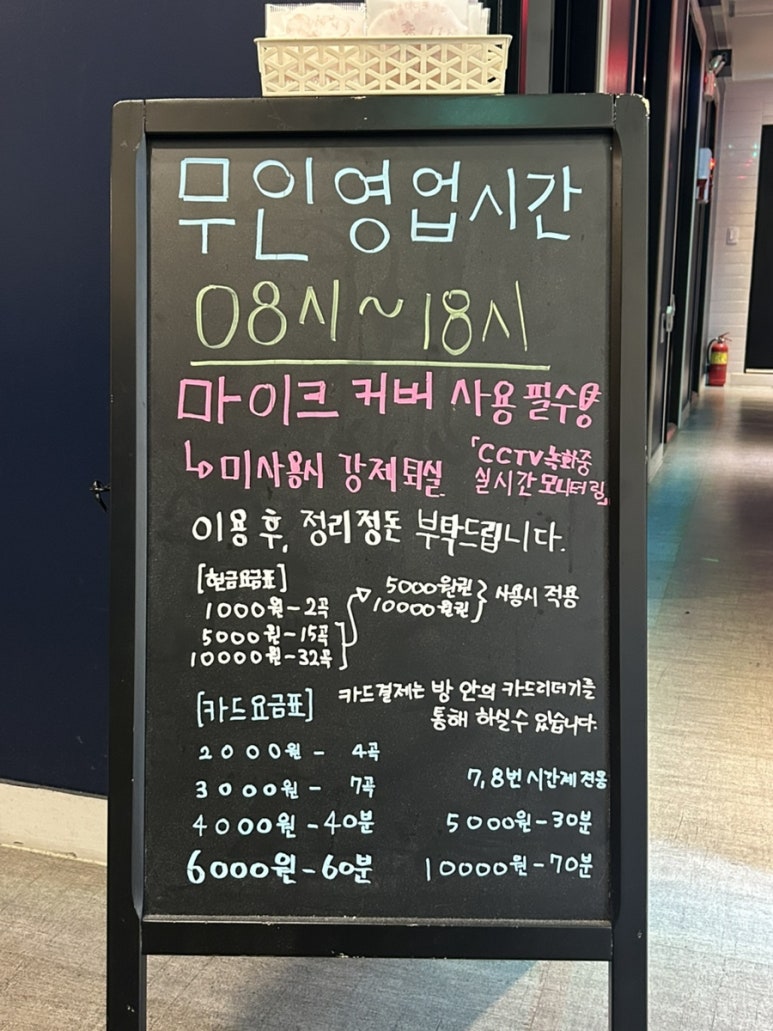 무인영업시간
08시~18시
마이크 커버 사용 필수
↳ 미사용시 강제퇴실 「CCTV 녹화중
실시간 모니터링」
이용 후, 정리정돈 부탁드립니다.
[현금요금표]
1000원-2곡
5000원-15곡
10000원-32곡
5000원권
10000원권 } 사용시 적용
[카드요금표]
카드결제는 방 안의 카드리더기를
통해 하실수 있습니다.
2000원 - 4곡
3000원 - 7곡
4000원 - 40분
6000원 - 60분
7, 8번 시간제 전용
5000원 - 30분
10000원 - 70분